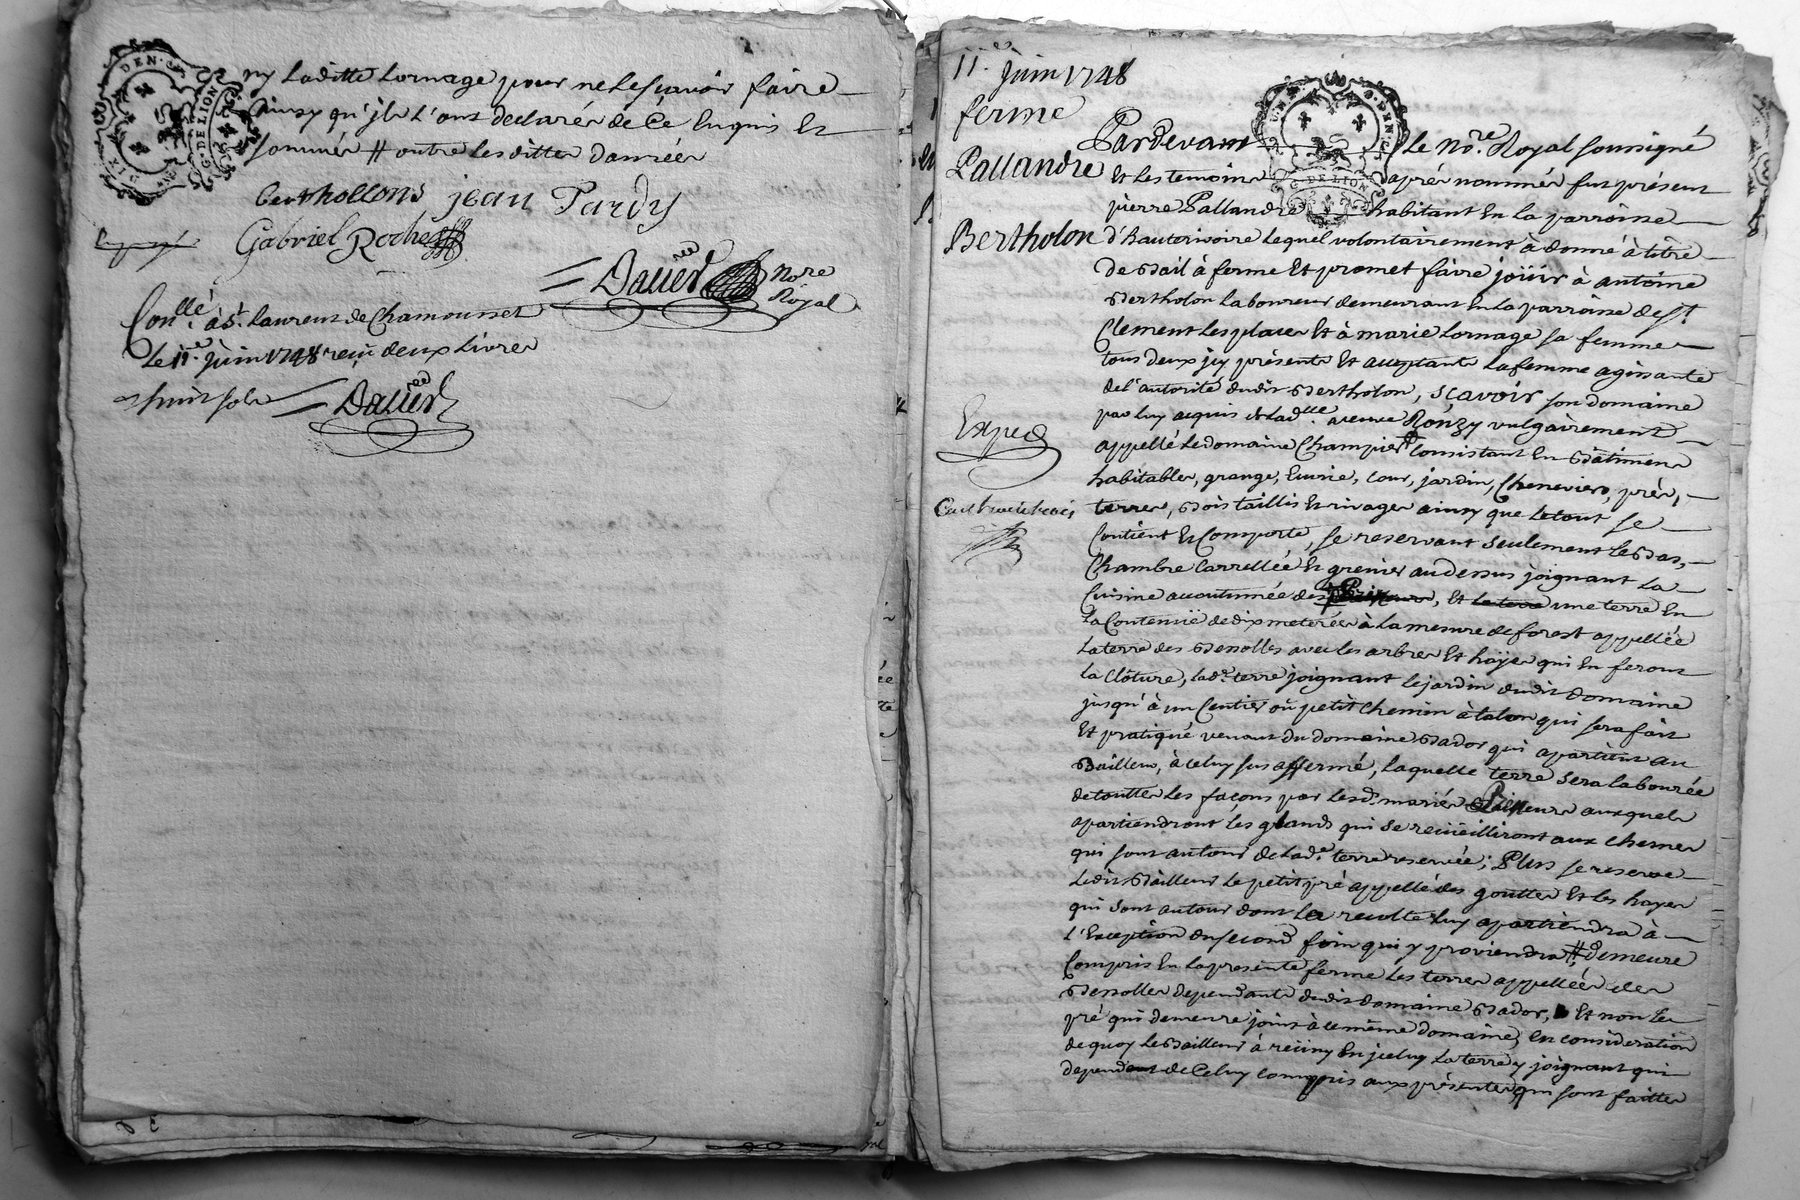 ny Laditte Lornage pour ne le sçavoir faire
ainsy qu'jls l'ont declarés de Ce Enquis Et
sommés # outre lesdittes danrées
berthollons jean Tardy
Gabriel Roche
Dauer No.re Royal
Con.llé à S.t Laurent de Chamousset
Le 11.e Juin 1748 reçu deux Livres
huit sols Dauer
GEN. DE LION
11.e Juin 1748
ferme
Pallandre
Bertholon
Exped
Pardevant Le No.re Royal soussigné
Et les temoins après nommés fut présent
pierre Pallandre habitant En la parroisse
d'hauterivoire lequel volontairement à donné à titre
De Bail à ferme Et promet faire joüir à antoine
Bertholon laboureur demeurant En la parroisse de S.t
Clement les places Et à marie Lornage sa femme
tous deux jcy présents Et acceptants la femme agissante
de l'autorité dudit Bertholon, sçavoir son domaine
par luy acquis de lad.lle Ronzy vulgairement
appellé Le domaine Champier Consistant En Bâtimens
habitables, grange, Ecurie, cour, jardin, Cheneviers, prés,
terres, Bois taillis Et rivages ainsy que le tout se
Contient Et Comporte, se reservant seulement le Bas,
Chambre Carrellée Et grenier au dessus joignant La
Cuisine accoutumée des, Et une terre En
la Contenüe de dix meterées à la mesure de forest appellée
la terre des Bessolles avec les arbres Et hayes qui En feront
la Clôture, lad.e terre joignant le jardin dudit domaine
jusqu'à un Centier oü petit chemin à talon qui sera fait
Et pratiqué venant du domaine Bador qui apartient au
Bailleur, à Celuy sus affermé, laquelle terre sera labourée
de touttes les façons par lesd. mariés Preneurs auxquels
apartiendront les glands qui se reüeilliront aux chesnes
qui sont autour de lad.e terre reservée; Plus se reserve
Ledit Bailleur le petit pré appellé des goutter Et les hayes
qui sont autour dont la recolte luy apartiendra à
l'Exception du second foin qui y proviendra, # demeure
Compris En la presente ferme les terres appellées des
Bessolles dependants dudit domaine Bador, Et non le
pré qui demeure joint à ce même domaine, En consideration
de quoy Le Bailleur à reüny En jceluy la terre y joignant qui
dependoit de Celuy compris aux présentes, qui sont faittes